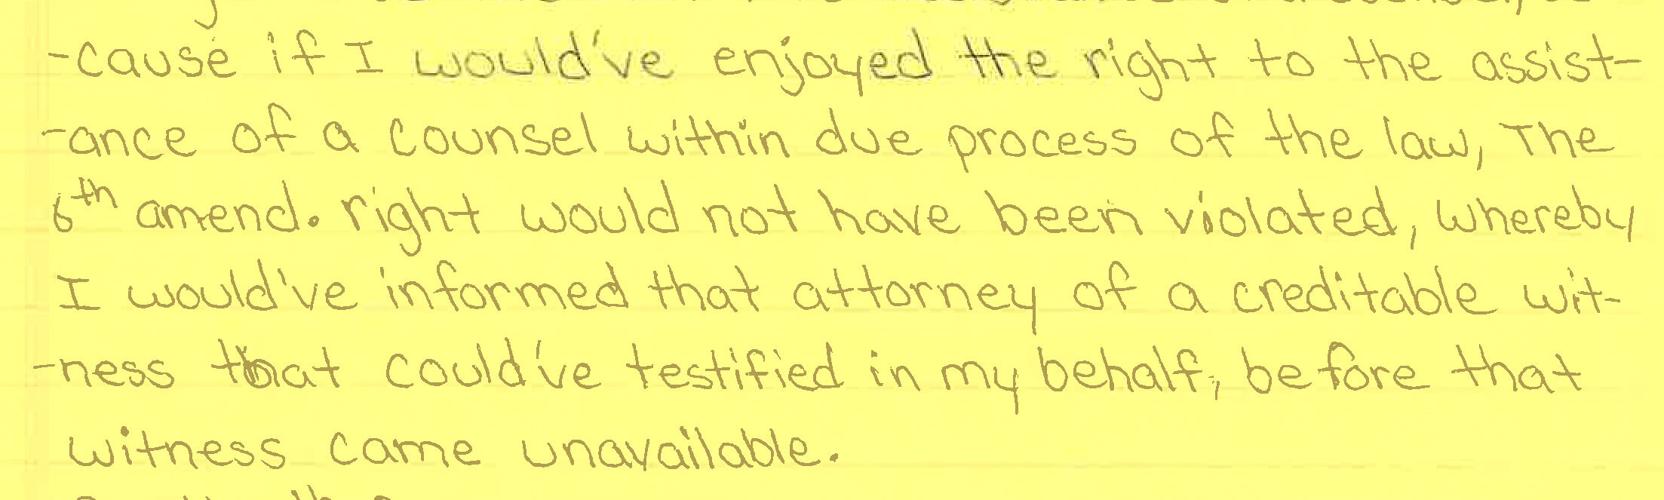 -cause if I would've enjoyed the right to the assist-
-ance of a counsel within due process of the law, The
6th amend. right would not have been violated, whereby
I would've informed that attorney of a creditable wit-
-ness that could've testified in my behalf, before that
witness came unavailable.